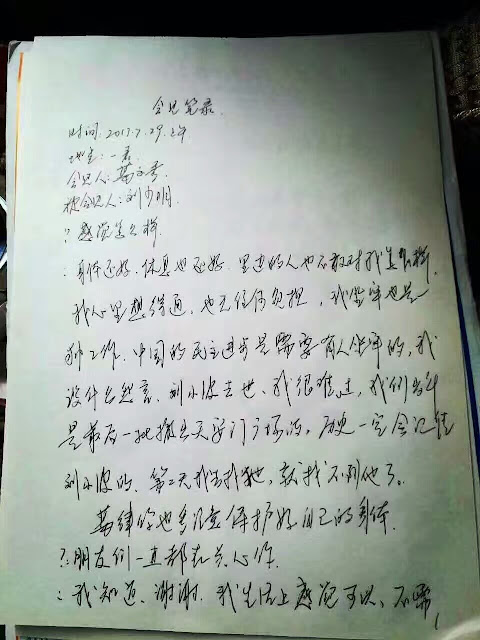 会见笔录
时间:2017.7.29.上午
地点:一看
会见人:葛永喜
被会见人:刘少明
?感觉怎么样
:身体还好.休息也还好.里边的人也不敢对我怎么样.
我心里想得通,也无任何负担,我坐牢也是
种工作.中国的民主进步是需要有人坐牢的,我
没什么怨言、刘小波去世、我很难过,我们当年
是最后一批撤出天安门广场的。历史一定会记住
刘小波的、第二天我去找他,就找不到他了。
葛律你也要注意保护好自己的身体.
?:朋友们一直都在关心你
:我知道、谢谢.我生活上感觉可以、不需